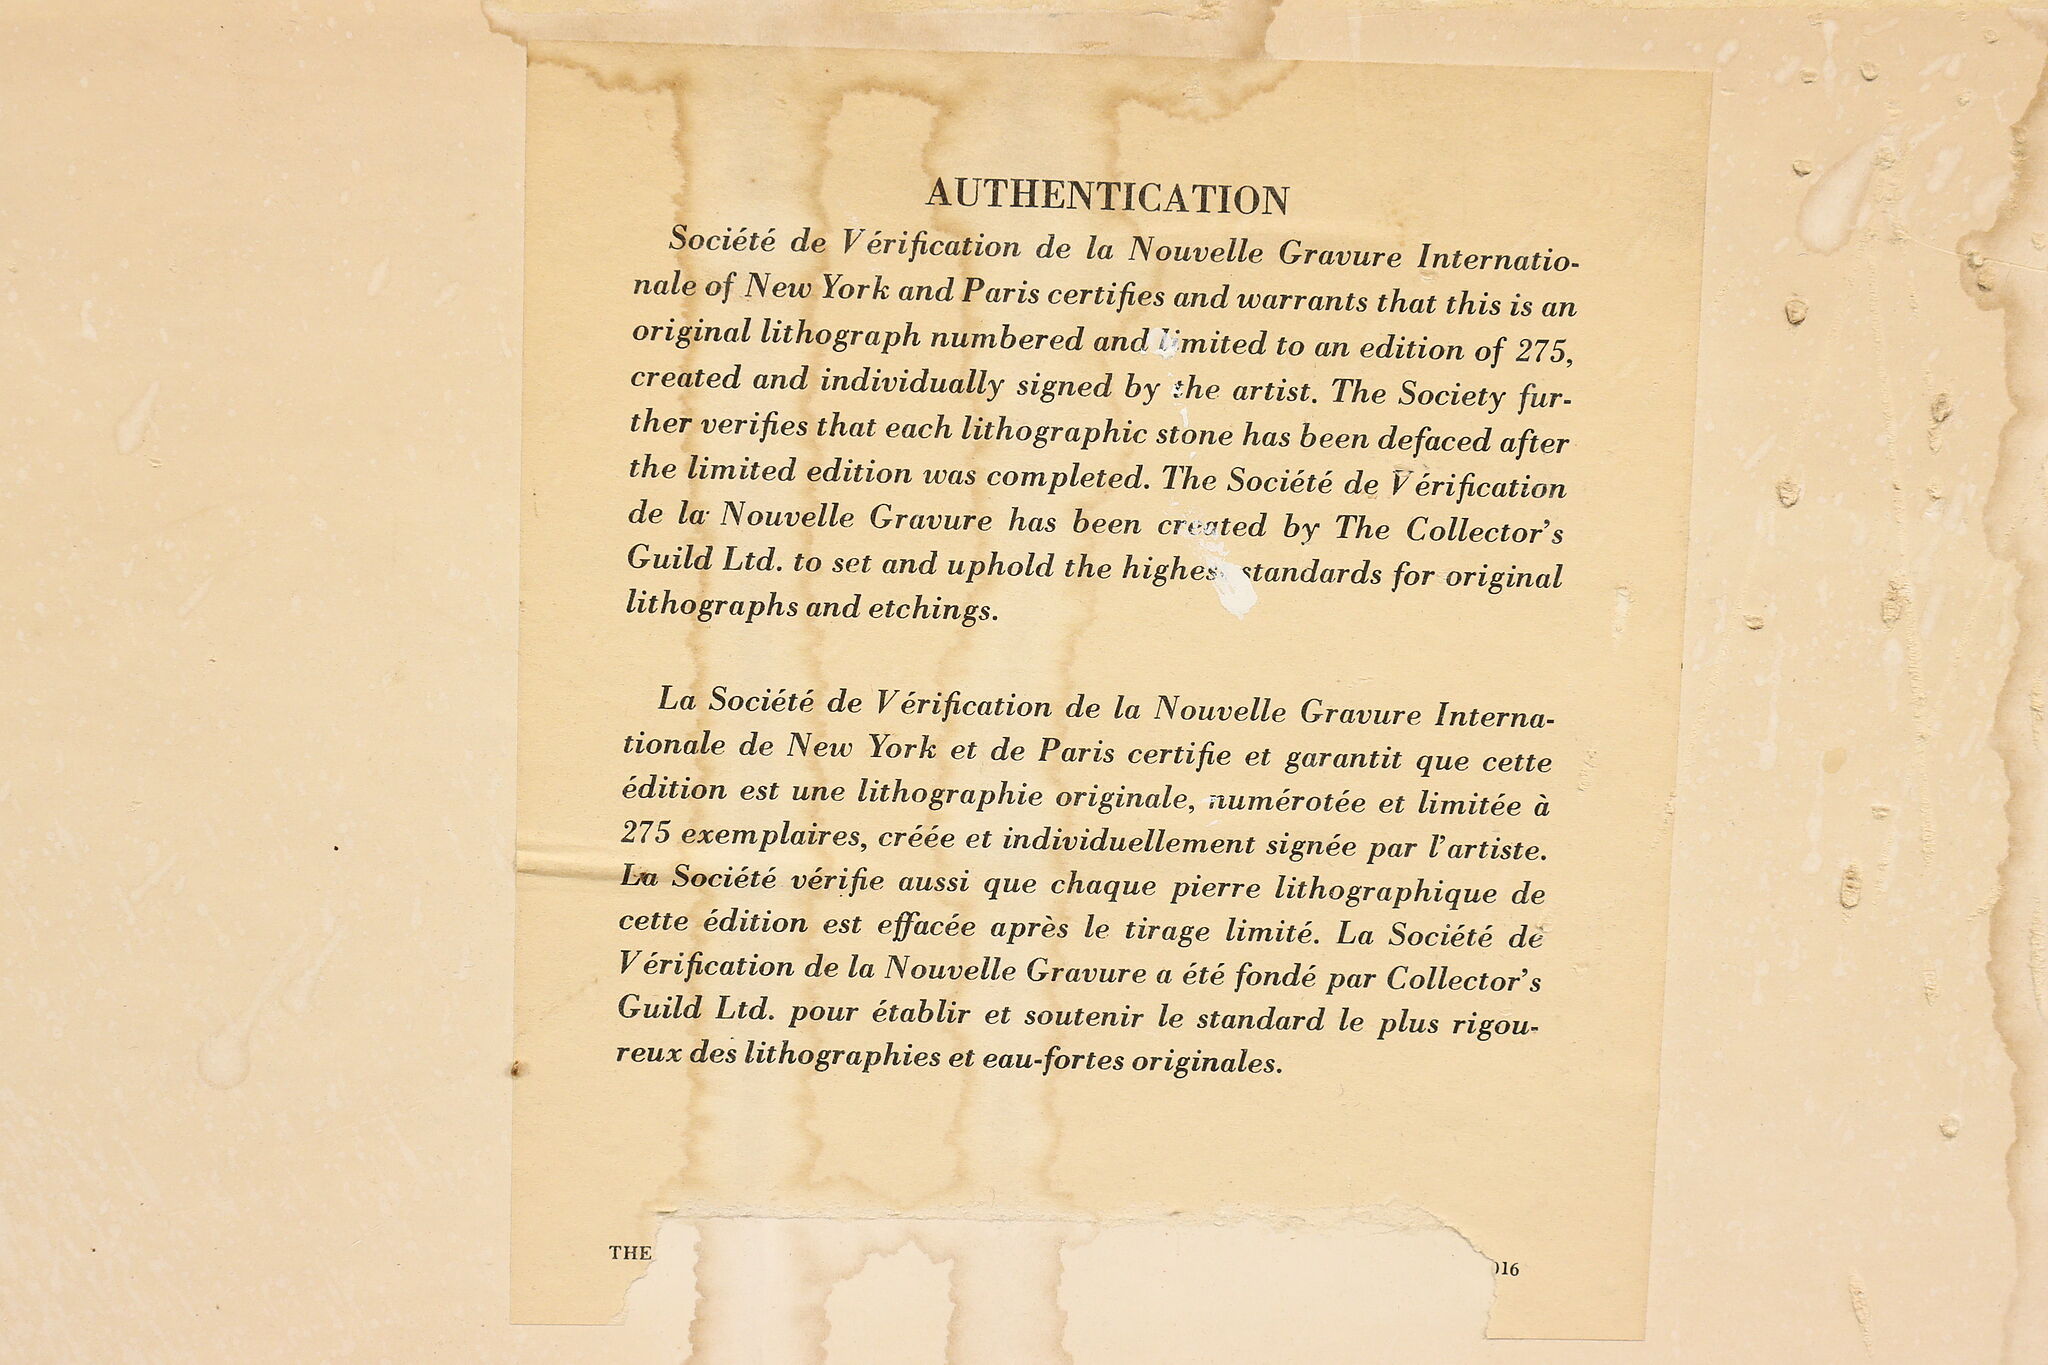 AUTHENTICATION
Société de Vérification de la Nouvelle Gravure Internatio-
nale of New York and Paris certifies and warrants that this is an
original lithograph numbered and limited to an edition of 275,
created and individually signed by the artist. The Society fur-
ther verifies that each lithographic stone has been defaced after
the limited edition was completed. The Société de Vérification
de la Nouvelle Gravure has been created by The Collector's
Guild Ltd. to set and uphold the highest standards for original
lithographs and etchings.
La Société de Vérification de la Nouvelle Gravure Interna-
tionale de New York et de Paris certifie et garantit que cette
édition est une lithographie originale, numérotée et limitée à
275 exemplaires, créée et individuellement signée par l'artiste.
La Société vérifie aussi que chaque pierre lithographique de
cette édition est effacée après le tirage limité. La Société de
Vérification de la Nouvelle Gravure a été fondé par Collector's
Guild Ltd. pour établir et soutenir le standard le plus rigou-
reux des lithographies et eau-fortes originales.
THE 016